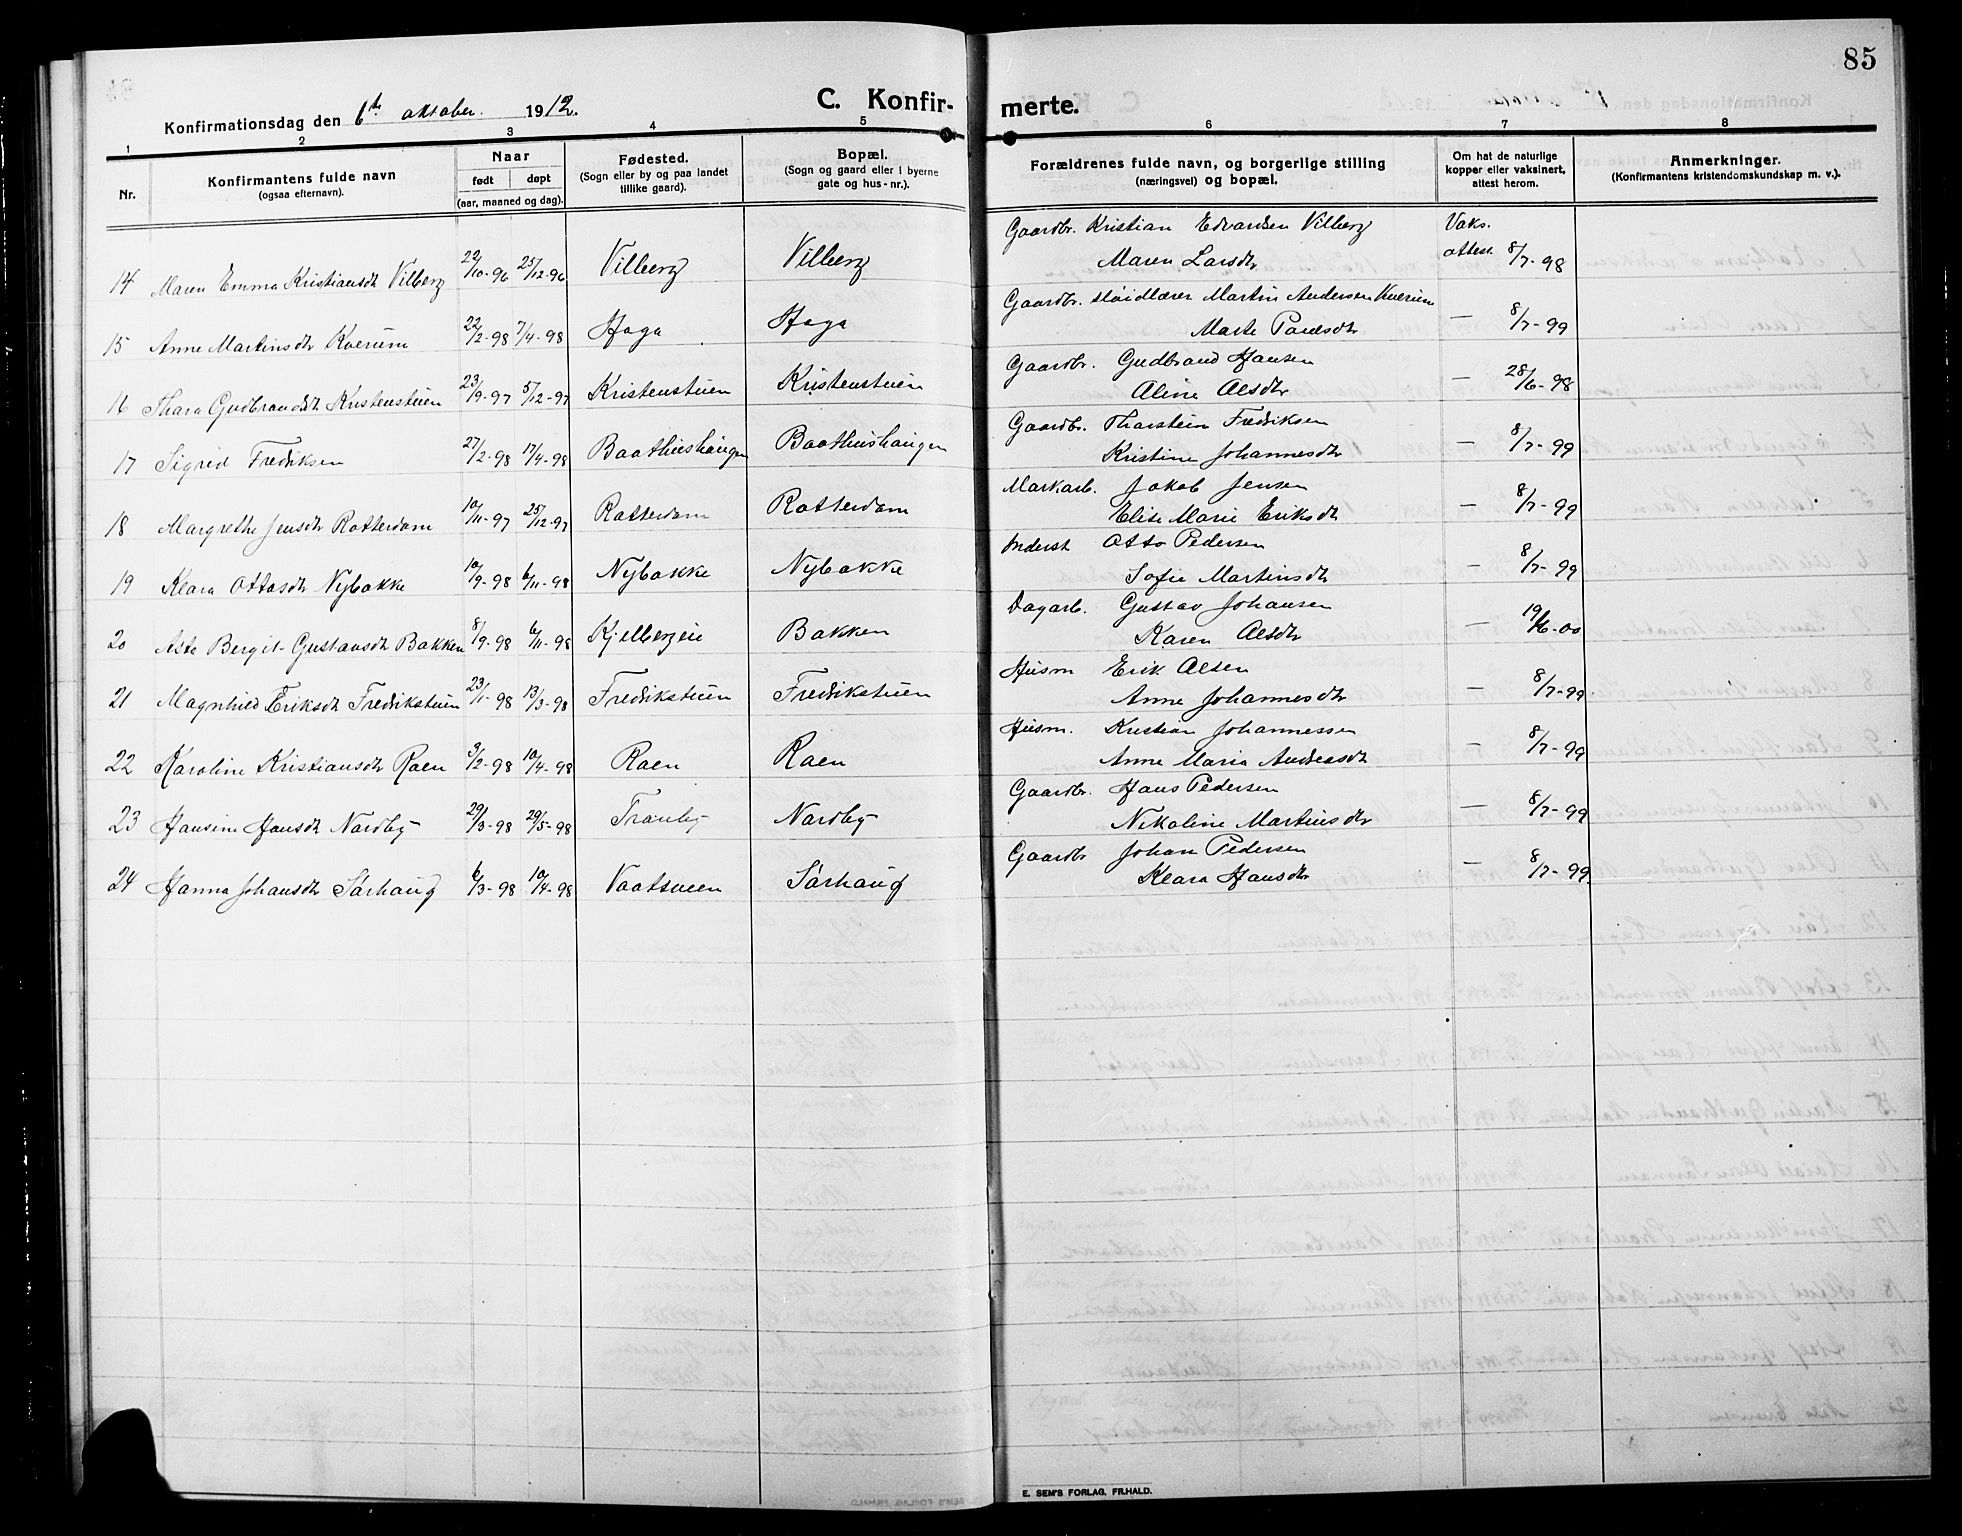 85
Konfirmationsdag den 6te oktober. 1912.
C. Konfir- merte.
1 2 3 4 5 6 7 8
Nr.
Konfirmantens fulde navn
(ogsaa efternavn).
Naar
født døpt
(aar, maaned og dag).
Fødested.
(Sogn eller by og paa landet
tillike gaard).
Bopæl.
(Sogn og gaard eller i byerne
gate og hus-nr.).
Forældrenes fulde navn, og borgerlige stilling
(næringsvei) og bopæl.
Om hat de naturlige
kopper eller vaksinert,
attest herom.
Anmerkninger.
(Konfirmantens kristendomskundskap m. v.).
Gaardbr. Kristian Edvardsen Vilberg Vaks.
14 Maren Emma Kristiansdtr Vilberg 22/10-96 25/12-96 Vilberg Vilberg Maren Larsdtr attest 8/7-98
Gaardbr. sløidlærer Martin Andersen Kverum
15 Anne Martinsdtr Kverum 22/2-98 7/4-98 Haga Haga Marte Paulsdtr — 8/7-99
Gaardbr. Gudbrand Hansen
16 Thora Gudbrandsdtr Kristenstuen 23/9-97 5/12-97 Kristenstuen Kristenstuen Aline Olsdtr — 28/6-98
Gaardbr. Thorstein Fredriksen
17 Sigrid Frediksen 27/2-98 17/4-98 Baathushaugen Baathushaugen Kristine Johannesdtr — 8/7-99
Markarb. Jakob Jensen
18 Margrethe Jensdtr Rotterdam 10/11-97 25/12-97 Rotterdam Rotterdam Elise Marie Eriksdtr — 8/7-99
Inderst Otto Pedersen
19 Klara Ottosdtr Nybakke 10/9-98 6/11-98 Nybakke Nybakke Sofie Martinsdtr — 8/7-99
Dagarb. Gustav Johansen
20 Asta Bergit Gustavsdtr Bakken 8/9-98 6/11-98 Kjelbergeie Bakken Karen Olsdtr — 19/6-00
Husm Erik Olsen
21 Magnhild Eriksdtr Fredrikstuen 23/1-98 13/3-98 Fredikstuen Fredikstuen Anne Johannesdtr — 8/7-99
Husm. Kristian Johannessen
22 Karoline Kristiansdtr Raen 3/2-98 10/4-98 Raen Raen Anne Maria Andreasdtr — 8/7-99
Gaardbr. Hans Pedersen
23 Hansine Hansdtr Nordby 29/3-98 29/5-98 Tranby Nordby Nikoline Martinsdtr — 8/7-99
Gaardbr Johan Pedersen
24 Hanna Johansdtr Sørhaug 6/3-98 10/4-98 Vaatsveen Sørhaug Klara Hansdtr — 8/7-99
E. SEM'S FORLAG, FR.HALD.